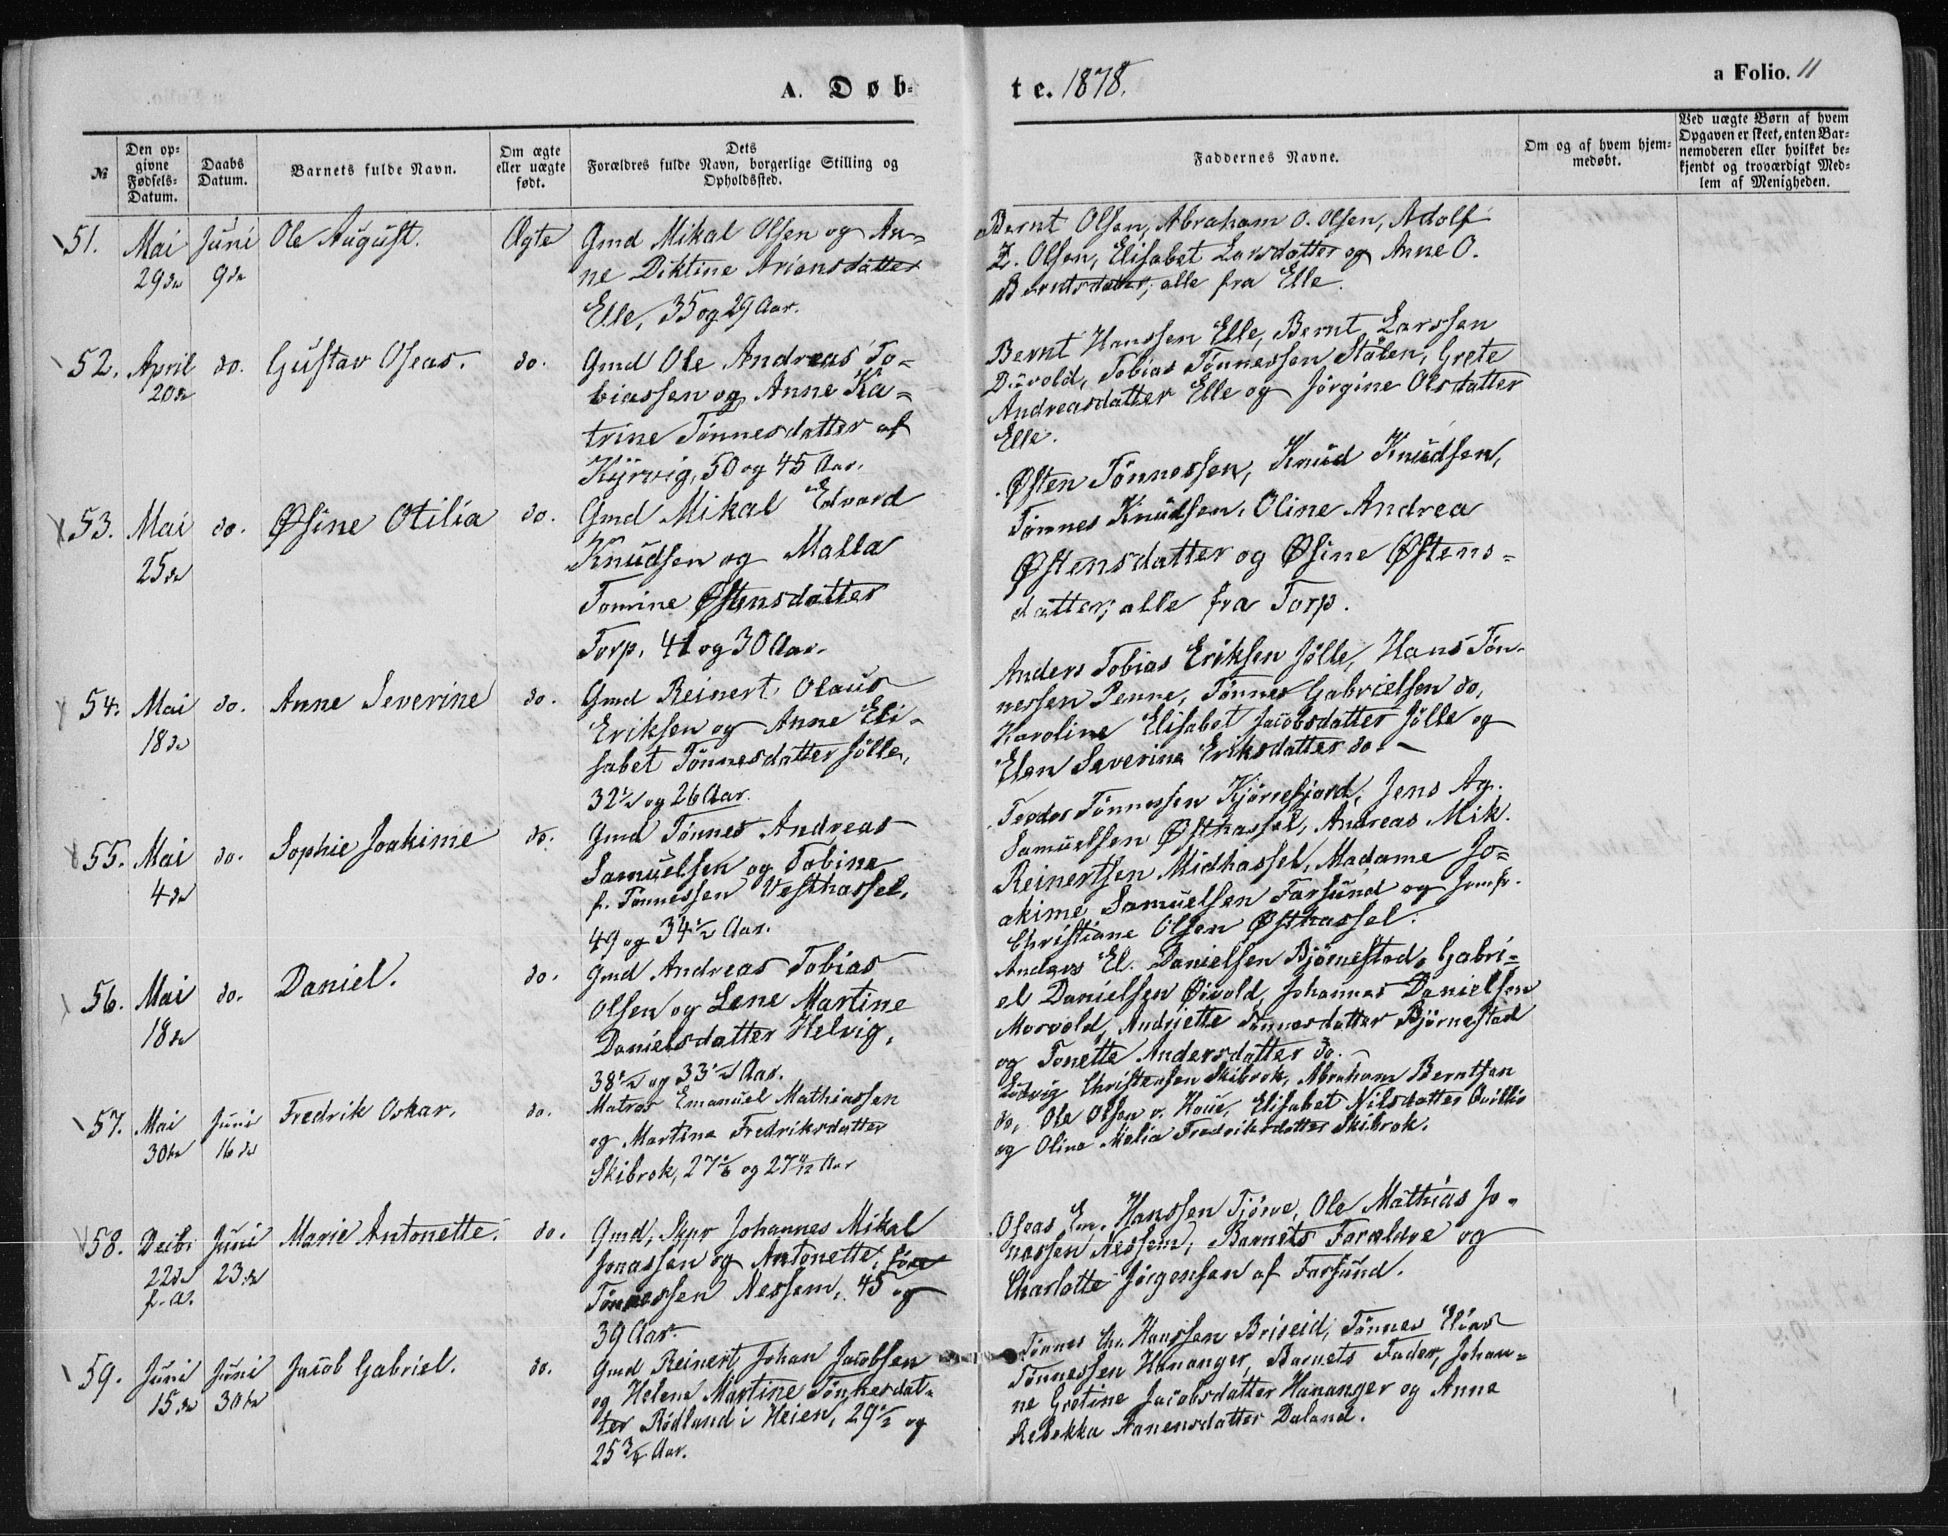 A. Døb-
te. 1878.
a Folio. 11
№
Den opgivne Fødsels-Datum.
Daabs Datum.
Barnets fulde Navn.
Om ægte eller uægte født.
Dets Forældres fulde Navn, borgerlige Stilling og Opholdssted.
Faddernes Navne.
Om og af hvem hjemmedøbt.
Ved uægte Børn af hvem Opgaven er skeet, enten Barnemoderen eller hvilket bekjendt og troværdigt Medlem af Menigheden.
51. Mai 29de Juni 9de Ole August. Ægte
Gmd Mikal Olsen og An-
ne Diktine Ariansdatter
Elle, 35 og 29 Aar.
Bernt Olsen, Abraham O. Olsen, Adolf
Z. Olsen, Elisabet Larsdatter og Anne O.
Berntsdatter, alle fra Elle.
52. April 20de do. Gustav Oseas. do.
Gmd Ole Andreas To-
biassen og Anne Ka-
trine Tønnesdatter af
Kjørvig, 50 og 45 Aar.
Bernt Hanssen Elle, Bernt Larssen
Duvold, Tobias Tønnessen Stølen, Grete
Andreasdatter Elle og Jørgine Olsdatter
Elle.
53. Mai 25de do. Øsine Otilia do.
Gmd Mikal Edvard
Knudsen og Malla
Tomine Østensdatter
Torp, 41 og 30 Aar.
Østen Tønnessen, Knud Knudsen,
Tønnes Knudsen, Oline Andrea
Østensdatter og Øsine Østens-
datter; alle fra Torp.
54. Mai 18de do. Anne Severine do.
Gmd Reinert Olaus
Eriksen og Anne Eli-
sabet Tønnesdatter Jølle,
32½ og 26 Aar.
Anders Tobias Eriksen Jølle, Hans Tøn-
nessen Penne, Tønnes Gabrielsen do,
Karoline Elisabet Jacobsdatter Jølle og
Elen Severine Eriksdatter do.
55. Mai 4de do. Sophie Joakime do.
Gmd Tønnes Andreas
Samuelsen og Tobine
f. Tønnessen Vesthassel,
49 og 34½ Aar.
Teodor Tønnessen Kjørrefjord, Jens Ag.
Samuelsen Østhassel, Andreas Mik.
Reinertsen Midhassel, Madame Jo-
akime Samuelsen Farsund og Jomfr.
Christiane Olsen Østhassel.
56. Mai 18de do. Daniel. do.
Gmd Andreas Tobias
Olsen og Lene Martine
Danielsdatter Helvig,
38½ og 33½ Aar.
Anders El. Danielsen Bjørnestad, Gabri-
el Danielsen Øivold, Johannes Danielsen
Morvold, Andriette Tønnesdatter Bjørnestad
og Tonette Andersdatter do.
57. Mai 30te Juni 16de Fredrik Oskar. do.
Matros Emanuel Mathiassen
og Martine Fredriksdatter
Skibrok, 27 og 27 Aar
Ludvig Christensen Skibrok, Abraham Berntsen
do, Ole Olsen v. Haue, Elisabet Nilsdatter
og Oline Malia Fredriksdatter Skibrok.
58. Decbr 22de f. A. Juni 23de Marie Antonette. do.
Gmd, Skpr Johannes Mikal
Jonassen og Antonette, født
Tønnessen Nessem, 45 og
39 Aar.
Oseas Em. Hanssen Tjørve, Ole Mathias Jo-
nassen Nessem, Barnets Forældre og
Charlotte Jørgensen af Farsund.
59. Juni 15de Juni 30te Jacob Gabriel. do.
Gmd Reinert Johan Jacobsen
og Helene Martine Tønnesdat-
ter Rødland i Heien, 29½ og
25¾ Aar.
Tønnes Chr. Hanssen Briseid, Tønnes Elias
Tønnessen Hananger, Barnets Fader, Johan-
ne Gretine Jacobsdatter Hananger og Anne
Rebekka Aanensdatter Daland.